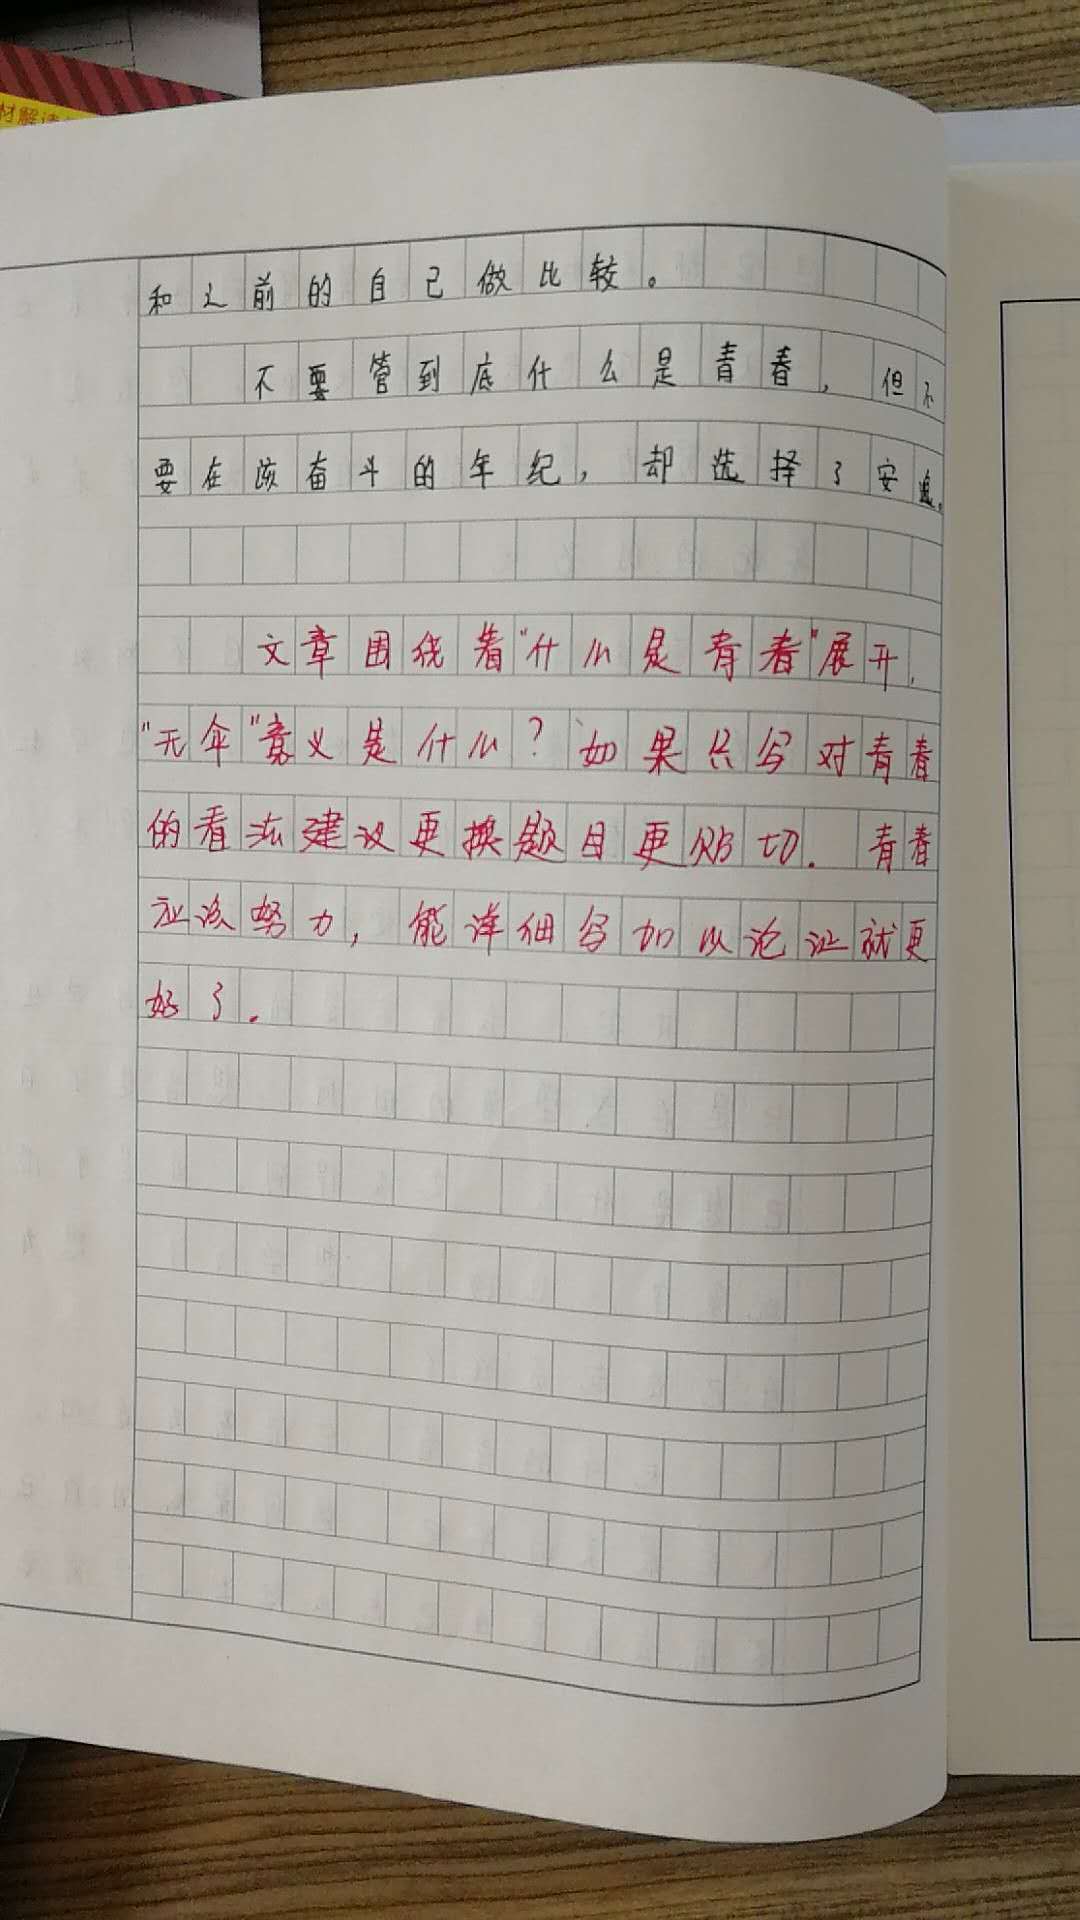 材解读
和之前的自己做比较。
不要管到底什么是青春，但不
要在该奋斗的年纪，却选择了安逸。
文章围绕着“什么是青春”展开，
“无伞”意义是什么？如果只写对青春
的看法建议更换题目更贴切．青春
应该努力，能详细写加以论证就更
好了．